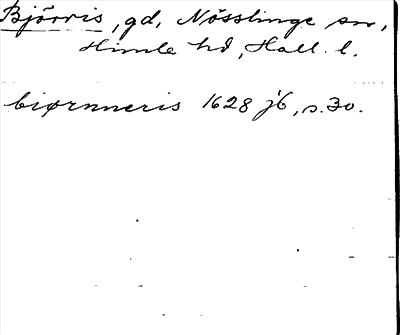 Björris, gd, Nösslinge sn,
Himle hd, Hall. l.
biørnneris 1628 jb, s. 30.